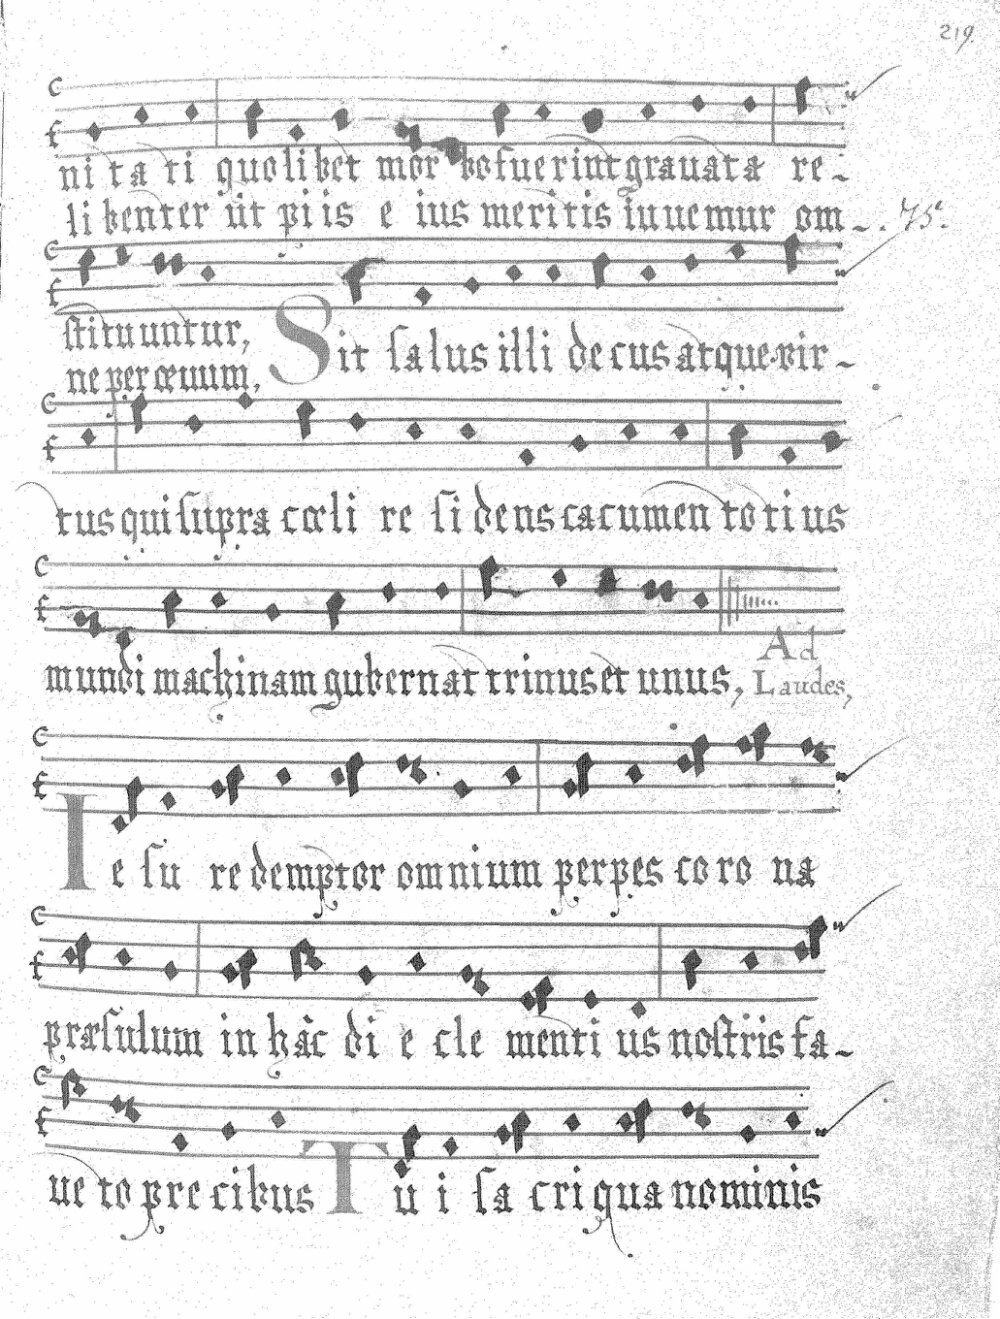 219.
ni ta ti quolibet mor bo fuerint grauata re -
li benter ut pi is e ius meri tis iuuemur om - . 75.
stitu untur,
ne per œuum, Sit salus illi de cus atque vir -
tus qui supra cœli re si dens cacumen to ti us
mundi machinam gubernat trinus et unus, Ad Laudes,
Ie su re demptor omnium perpes co ro na
præsulum in hâc di e cle menti us nostris fa -
ue to pre cibus Tu i sa cri qua nominis